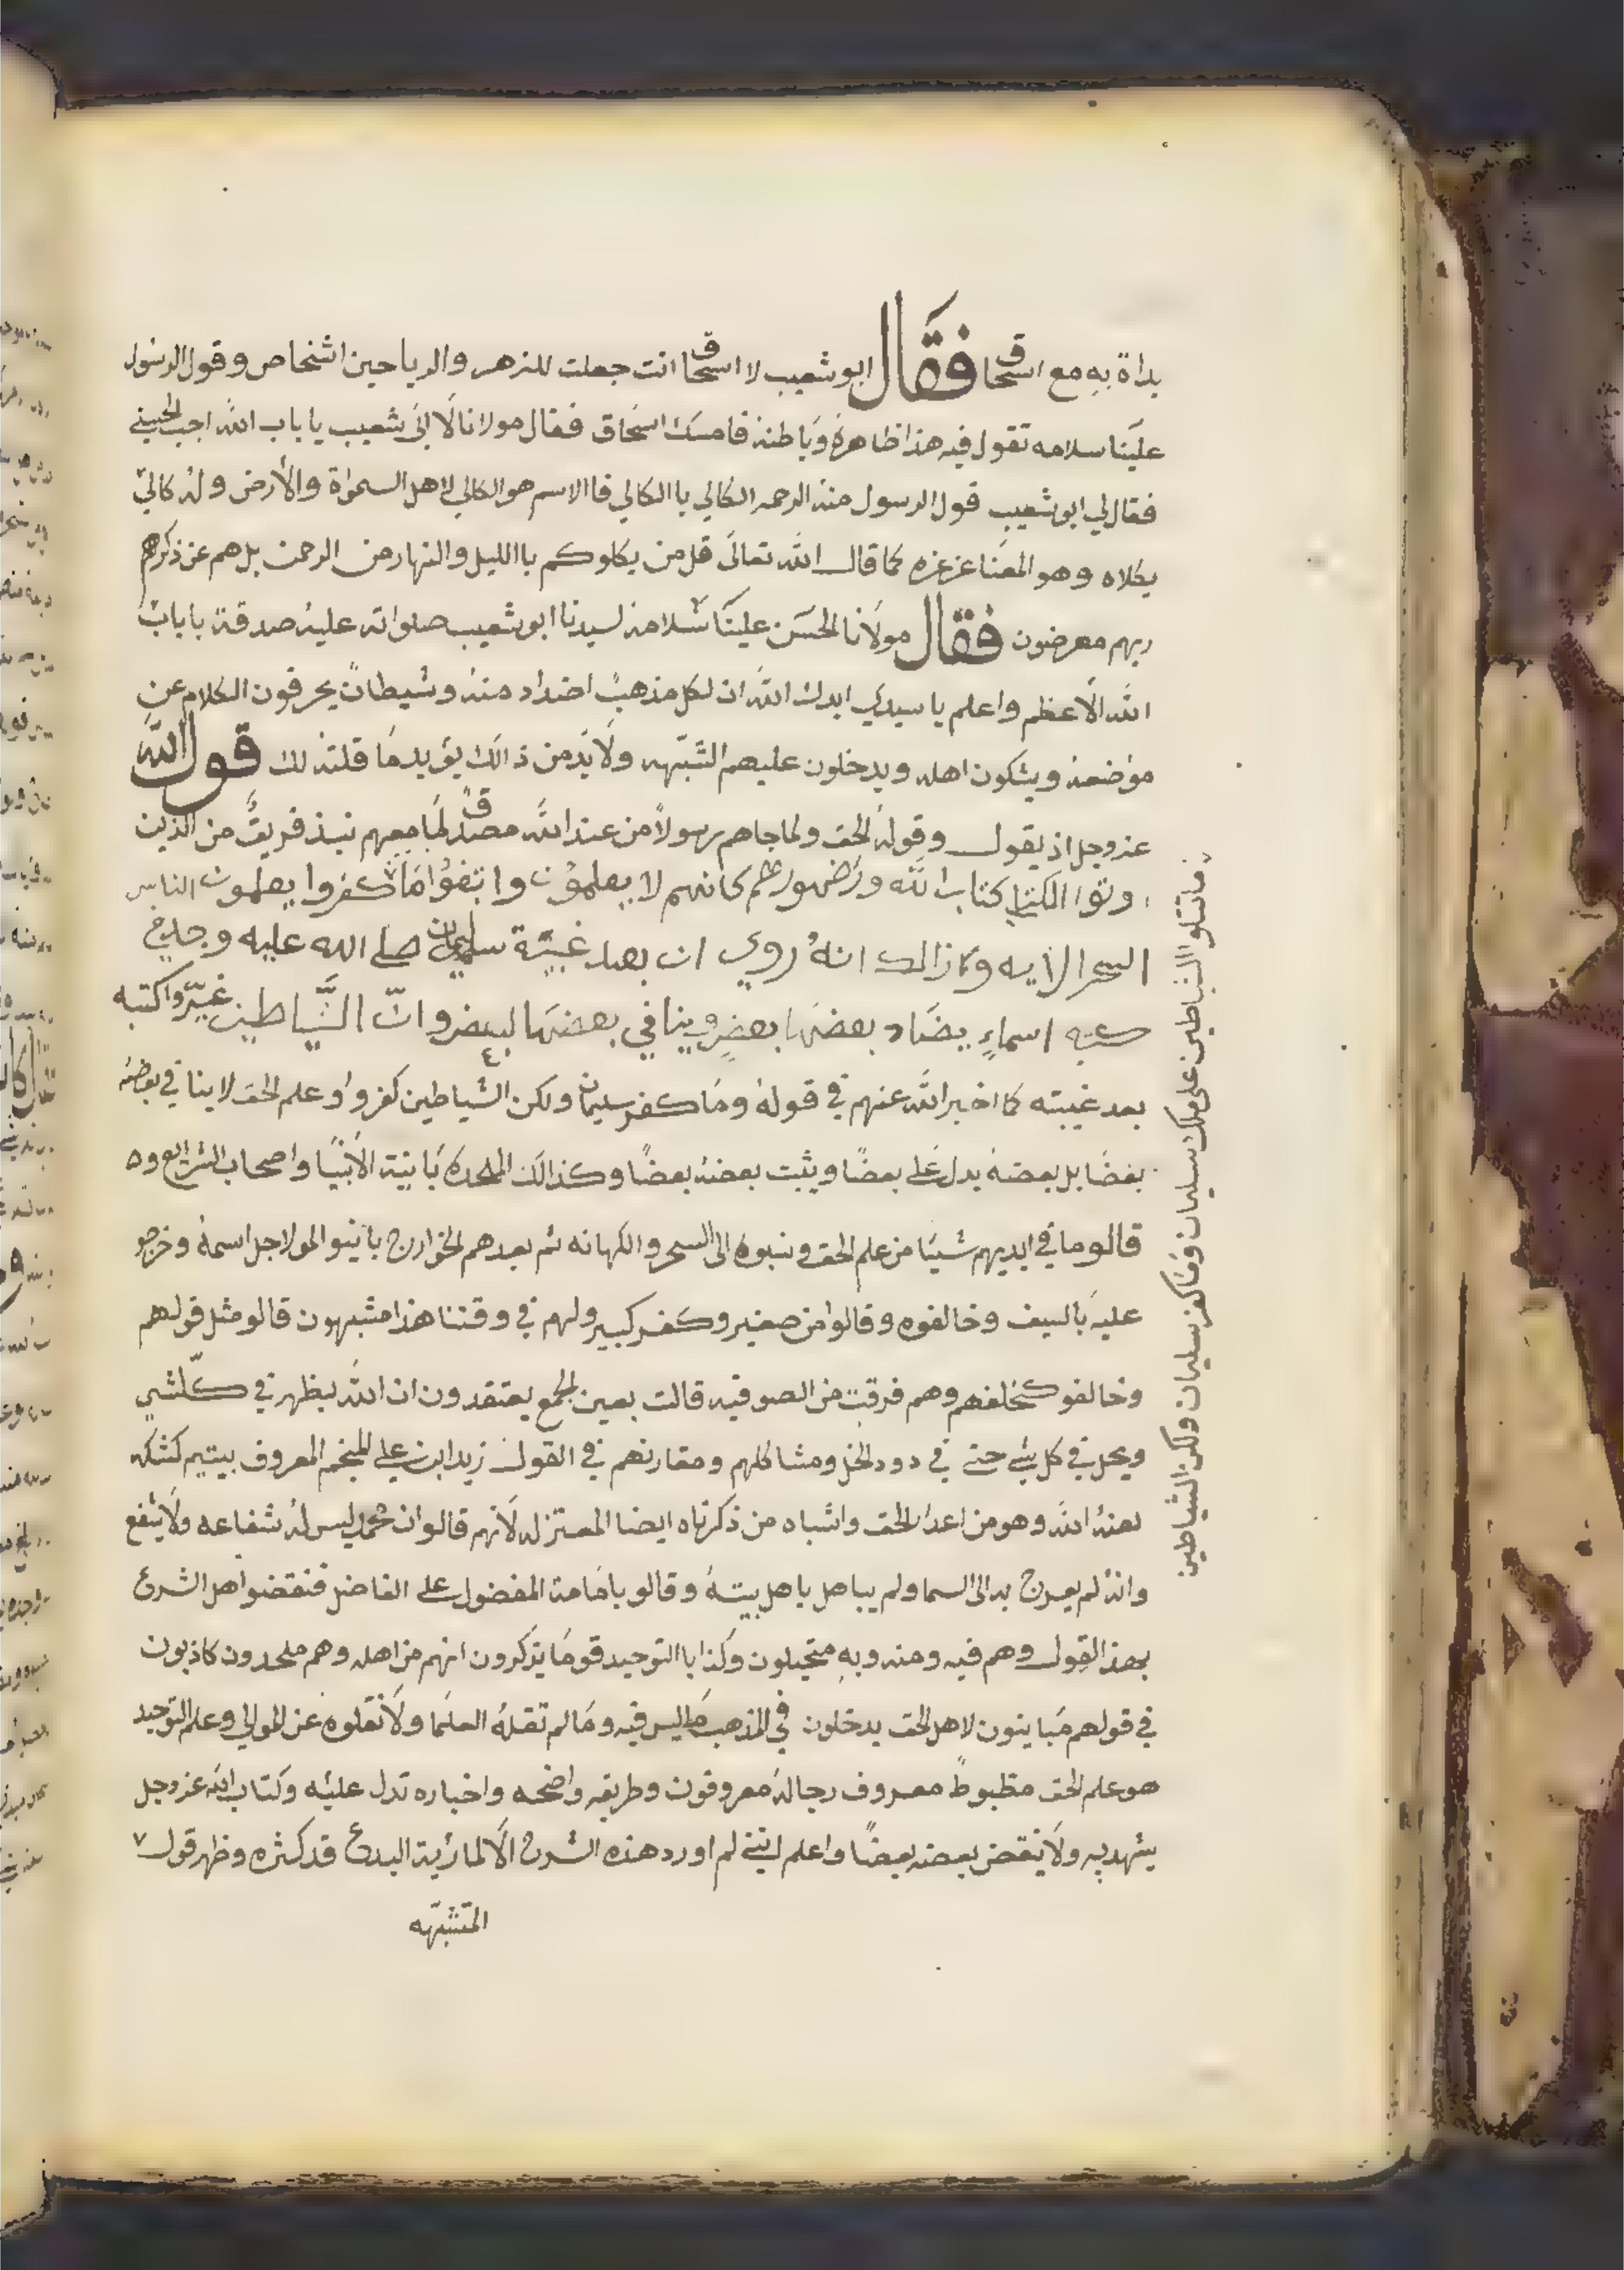 بداة به مع اسحاق فقال ابو شعيب لا اسحاق انت جعلت للزهر والرياحين اشخاص وقول الرسول
علينا سلامه تقول فيه هذا ظاهرة وباطنه فامسك اسحاق فقال مولانا لا الى شعيب يا باب الله اجب الحسني
فقال لي ابو شعيب قول الرسول منه الرحمه الكالي با الكالي فا الاسم هو الكالي لاهل السمواة والأرض وله كالي
يكلاه وهو المعنا عز عزه كما قال الله تعالى قل من يكلوكم با الليل والنهار من الرحمن بل هم عن ذكرهم
ربهم معرضون فقال مولانا الحسن علينا سلامه لسيدنا ابو شعيب صلواته عليه صدقة يا باب
الله الأعظم واعلم يا سيدي ايدك الله ان لكل مذهب اضداد منه وشيطان يحرفون الكلام عن
موضعه ويشكون اهله ويدخلون عليهم الشبهه ولا بد من ذالك يؤيد ما قلته لك قول الله
عز وجل اذ يقول وقوله الحق ولما جاهم رسولا من عند الله مصدق لما معهم نبذ فريق من الذين
اوتوا الكتاب كتاب الله ورى ظهورهم كانهم لا يعلمون واتبعوا ما كفروا يعلمون الناس
السحر الايه وكذالك انه روي ان بعد غيبة سليمان صلى الله عليه وجد في
كتبه اسماء يضاد بعضها بعض وينافي بعضها لبعض وان الشياطين غيرو اكتبه
بعد غيبته كما اخبر الله عنهم في قوله وما كفر سليمان ولكن الشياطين كفروا وعلم الحق لا ينافي بعضه
بعضا بل بعضه يدل على بعضا ويثبت بعضه بعضا وكذالك الملحده باينة الأنبيا واصحاب الشرايع و
قالو ما في ايديهم شيا من علم الحق ونسبوه الى السحر والكهانه ثم بعدهم الخوارج باينو المولا جل اسمه وخرجو
عليه بالسيف وخالفوه وقالوا من صغير وكفر كبير ولهم في وقتنا هذا مشبهون قالو مثل قولهم
وخالفو كخلفهم وهم فرقت من الصوفيه قالت بعين الجمع يعتقدون ان الله يظهر في كلشي
ويحل في كل شي حتى في دود الخل ومشاكلهم ومقارنهم في القول زيد ابن علي المنجم المعروف بيتيم كشكه
لعنه الله وهو من اعدا الحق واشباه من ذكرناه ايضا المعتزله لأنهم قالوا ان محمد ليس له شفاعه ولا يشفع
وانه لم يعرج به الى السما ولم يباهل باهل بيته وقالو بامامة المفضول على الفاضل فنقضوا اهل الشرع
بهذا القول وهم فيه ومنه وبه متحيلون وكذا با التوحيد قوما يذكرون انهم من اهله وهم ملحدون كاذبون
في قولهم مباينون لاهل الحق يدخلون في المذهب ما ليس فيه وما لم تقله العلما ولا نقلوه عن الموالي وعلم التوحيد
هو علم الحق مظبوط معروف رجاله معروفون وطريقه واضحه واخباره تدل عليه وكتاب الله عز وجل
يشهد به ولا ينقض بعضه بعضا واعلم انني لم اورد هذه الشرح الا لما رئية البدع قد كثره وظهر قول
المتشبهه
ما تتلو الشياطين على ملك سليمان وما كفر سليمان ولكن الشياطين